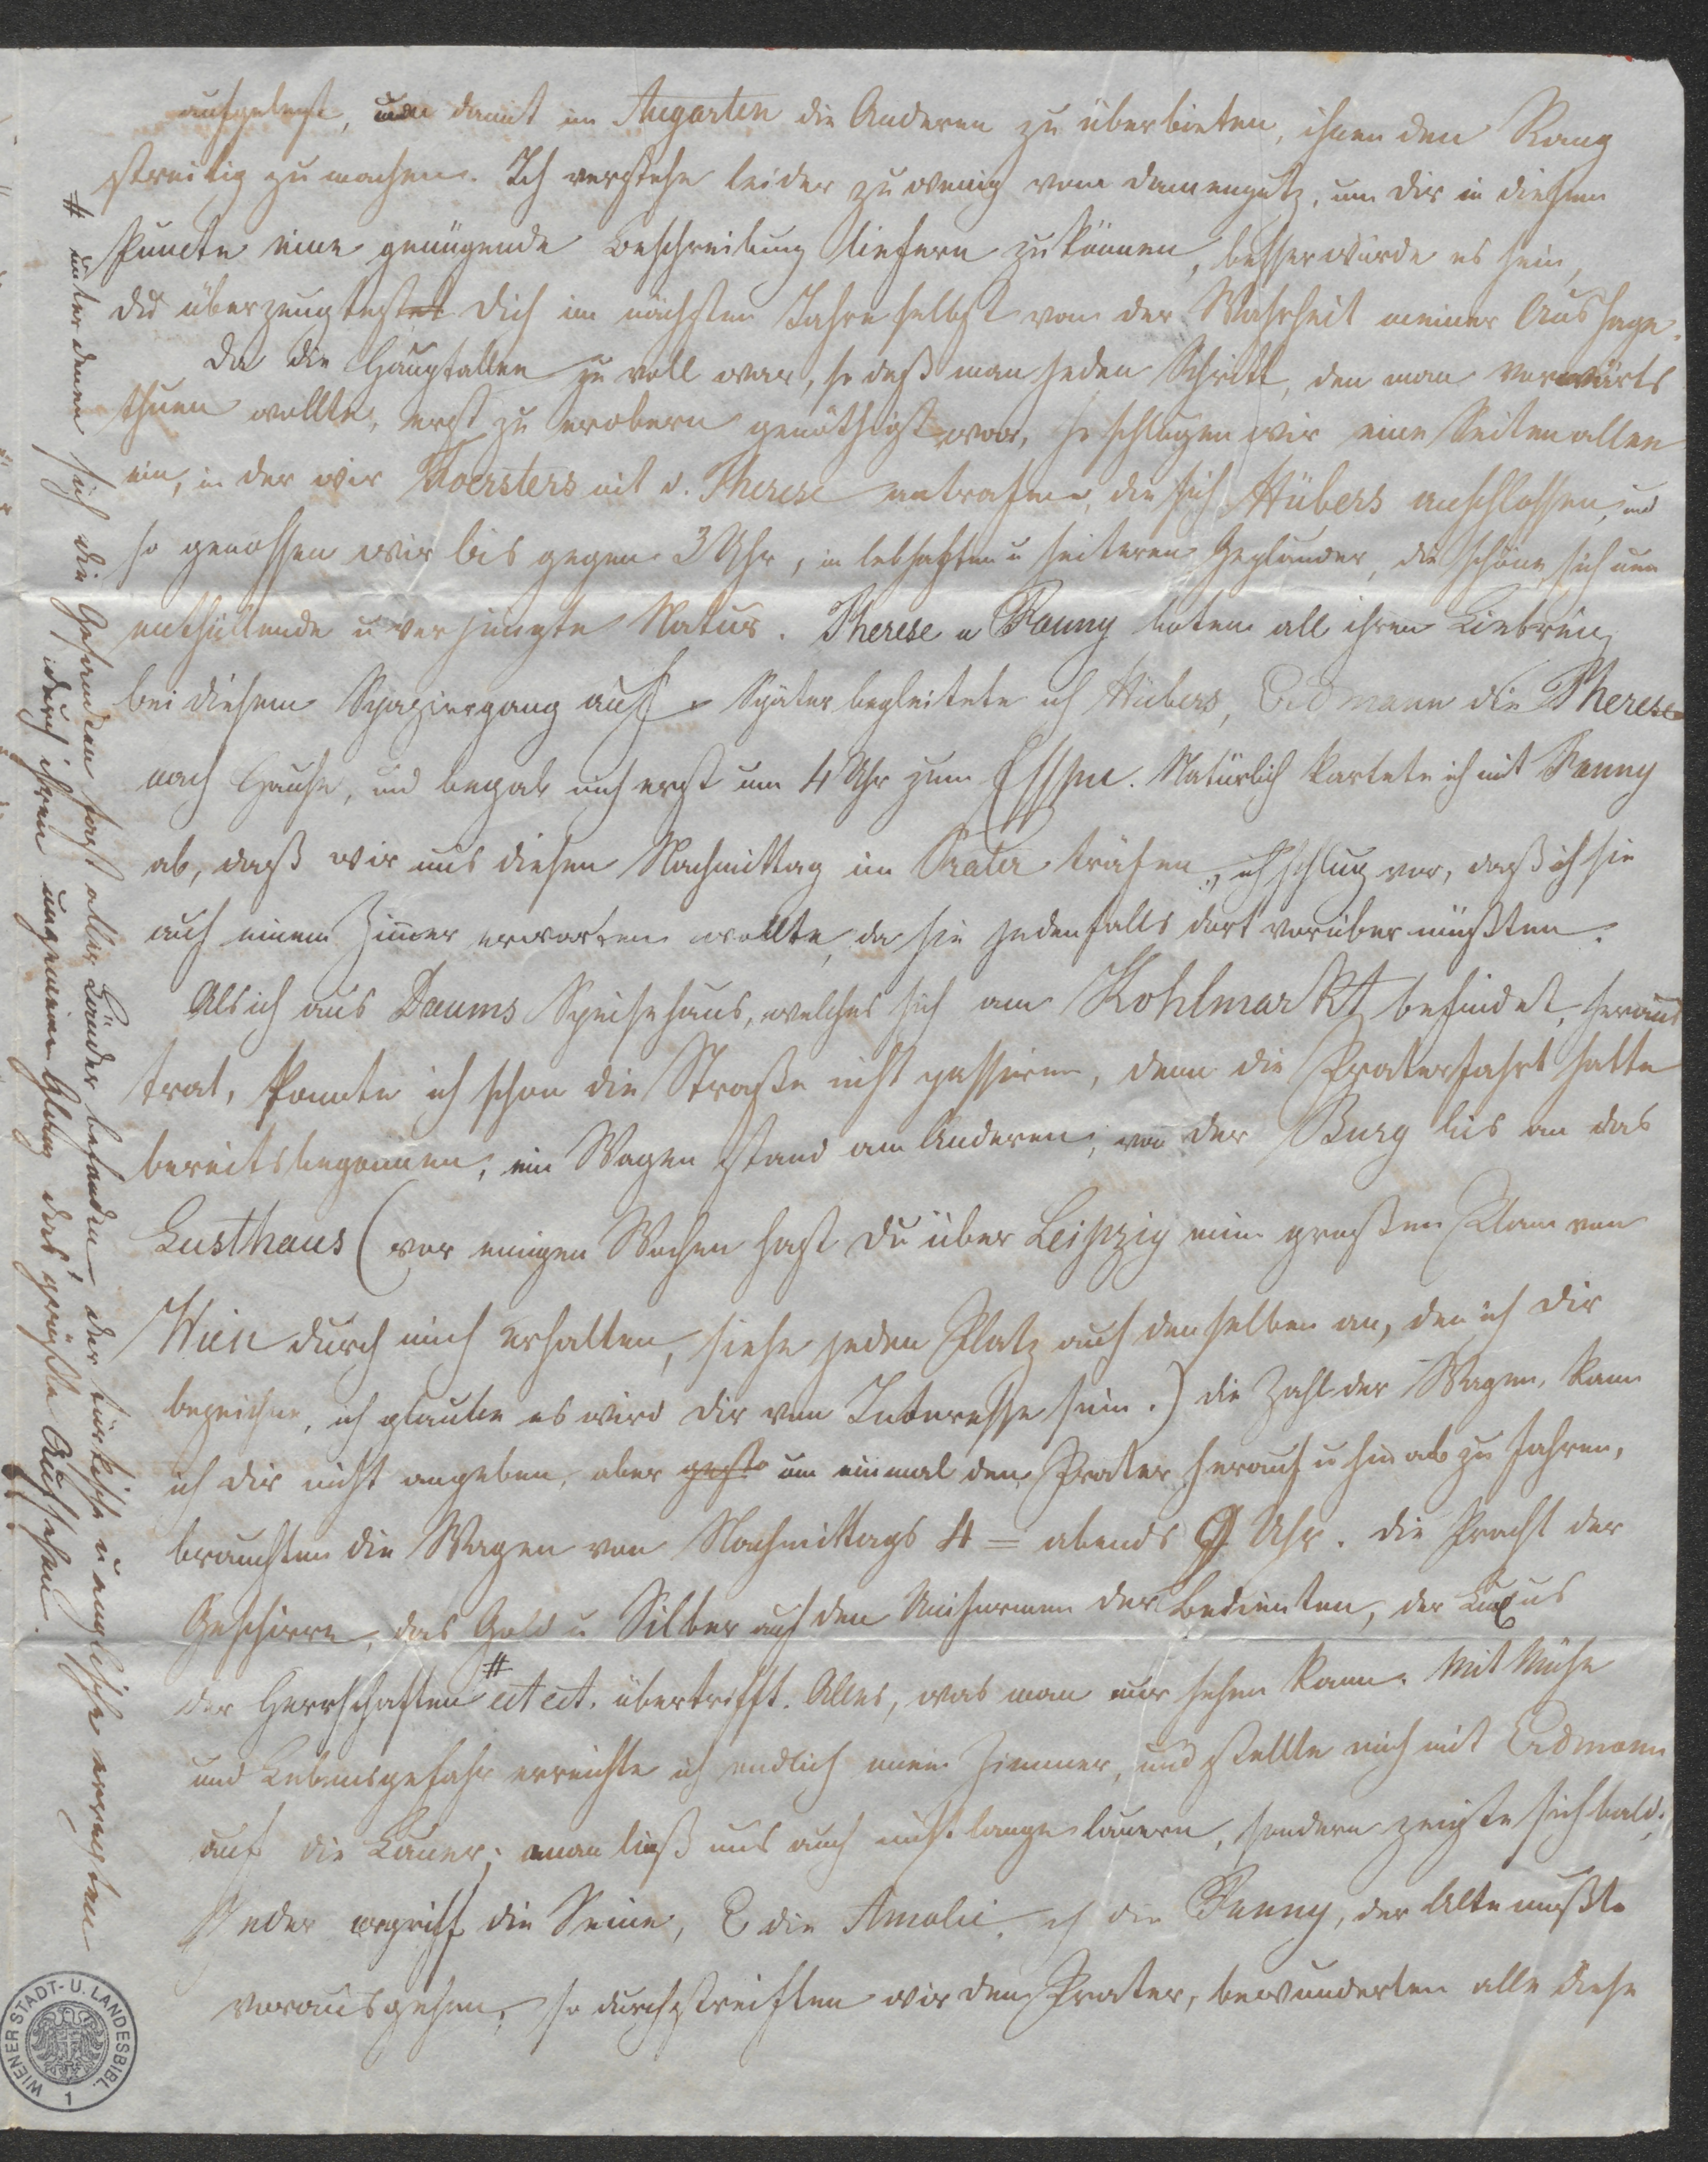 aufgelegt, um damit im Augarten die Anderen zu überbieten, ihnen den Rang
streitig zu machen. Ich verstehe leider zu wenig vom Damenputz, um Dir in diesem
Puncte eine genügende Beschreibung liefern zu können, besser würde es sein,
Du überzeugtest Dich im nächsten Jahre selbst von der Wahrheit meiner Aussage.
Da die Hauptallee zu voll war, so daß man jeden Schritt, den man vorwärts
thuen wollte, erst zu erobern genöthigt war, so schlugen wir eine Seitenallee
ein, in der wir Foersters mit d. Therese antrafen, die sich Hübers anschlossen, und
so genossen wir bis gegen 3 Uhr, in lebhaften u heiteren Geplauder, die schöne sich nun
enthüllende u verjüngte Natur. Therese u Fanny boten all ihren Liebreiz
bei diesem Spaziergang auf. Später begleitete ich Hübers, Erdmann die Therese
nach Hause, und begab mich erst um 4 Uhr zum Essen. Natürlich kartete ich mit Fanny
ab, daß wir uns diesen Nachmittag im Prater träfen, ich schlug vor, daß ich sie
auf meinem Zimmer erwarten wollte, da sie jedenfalls dort vorüber müßten.
Als ich aus Daums Speisehaus, welches sich am Kohlmarkt befindet, heraus
trat, konnte ich schon die Straße nicht passiren, denn die Praterfahrt hatte
bereits begonnen, ein Wagen stand am Anderen, von der Burg bis an das
Lusthaus (vor einigen Wochen hast Du über Leipzig einen großen Plan von
Wien durch mich erhalten, siehe jeden Platz auf demselben an, den ich Dir
bezeichne, ich glaube es wird Dir von Interesse sein.) die Zahl der Wagen, kann
ich Dir nicht angeben, aber um einmal den Prater herauf u hinab zu fahren,
brauchten die Wagen von Nachmittags 4 = abends 9 Uhr. Die Pracht der
Geschirre, das Gold u Silber auf den Uniformen der Bedienten, der Luxus
der Herrschaften # ect ect. übertrifft Alles, was man nur sehen kann. Mit Mühe
und Lebensgefahr erreichte ich endlich mein Zimmer, und stellte mich mit Erdmann
auf die Lauer; man ließ uns auch nicht lange lauern, sondern zeigte sich bald.
Jeder ergriff die Seine, E die Amalie, ich die Fanny, der Alte mußte
vorausgehen, so durchstreiften wir den Prater, bewunderten alle diese
# unter denen sich die Gesandten fast aller Länder befanden, der türkische u englische erregten
durch ihren ungemeinen Glanz das größte Aufsehen.
WIENER STADT- U. LANDESBIBL.
1